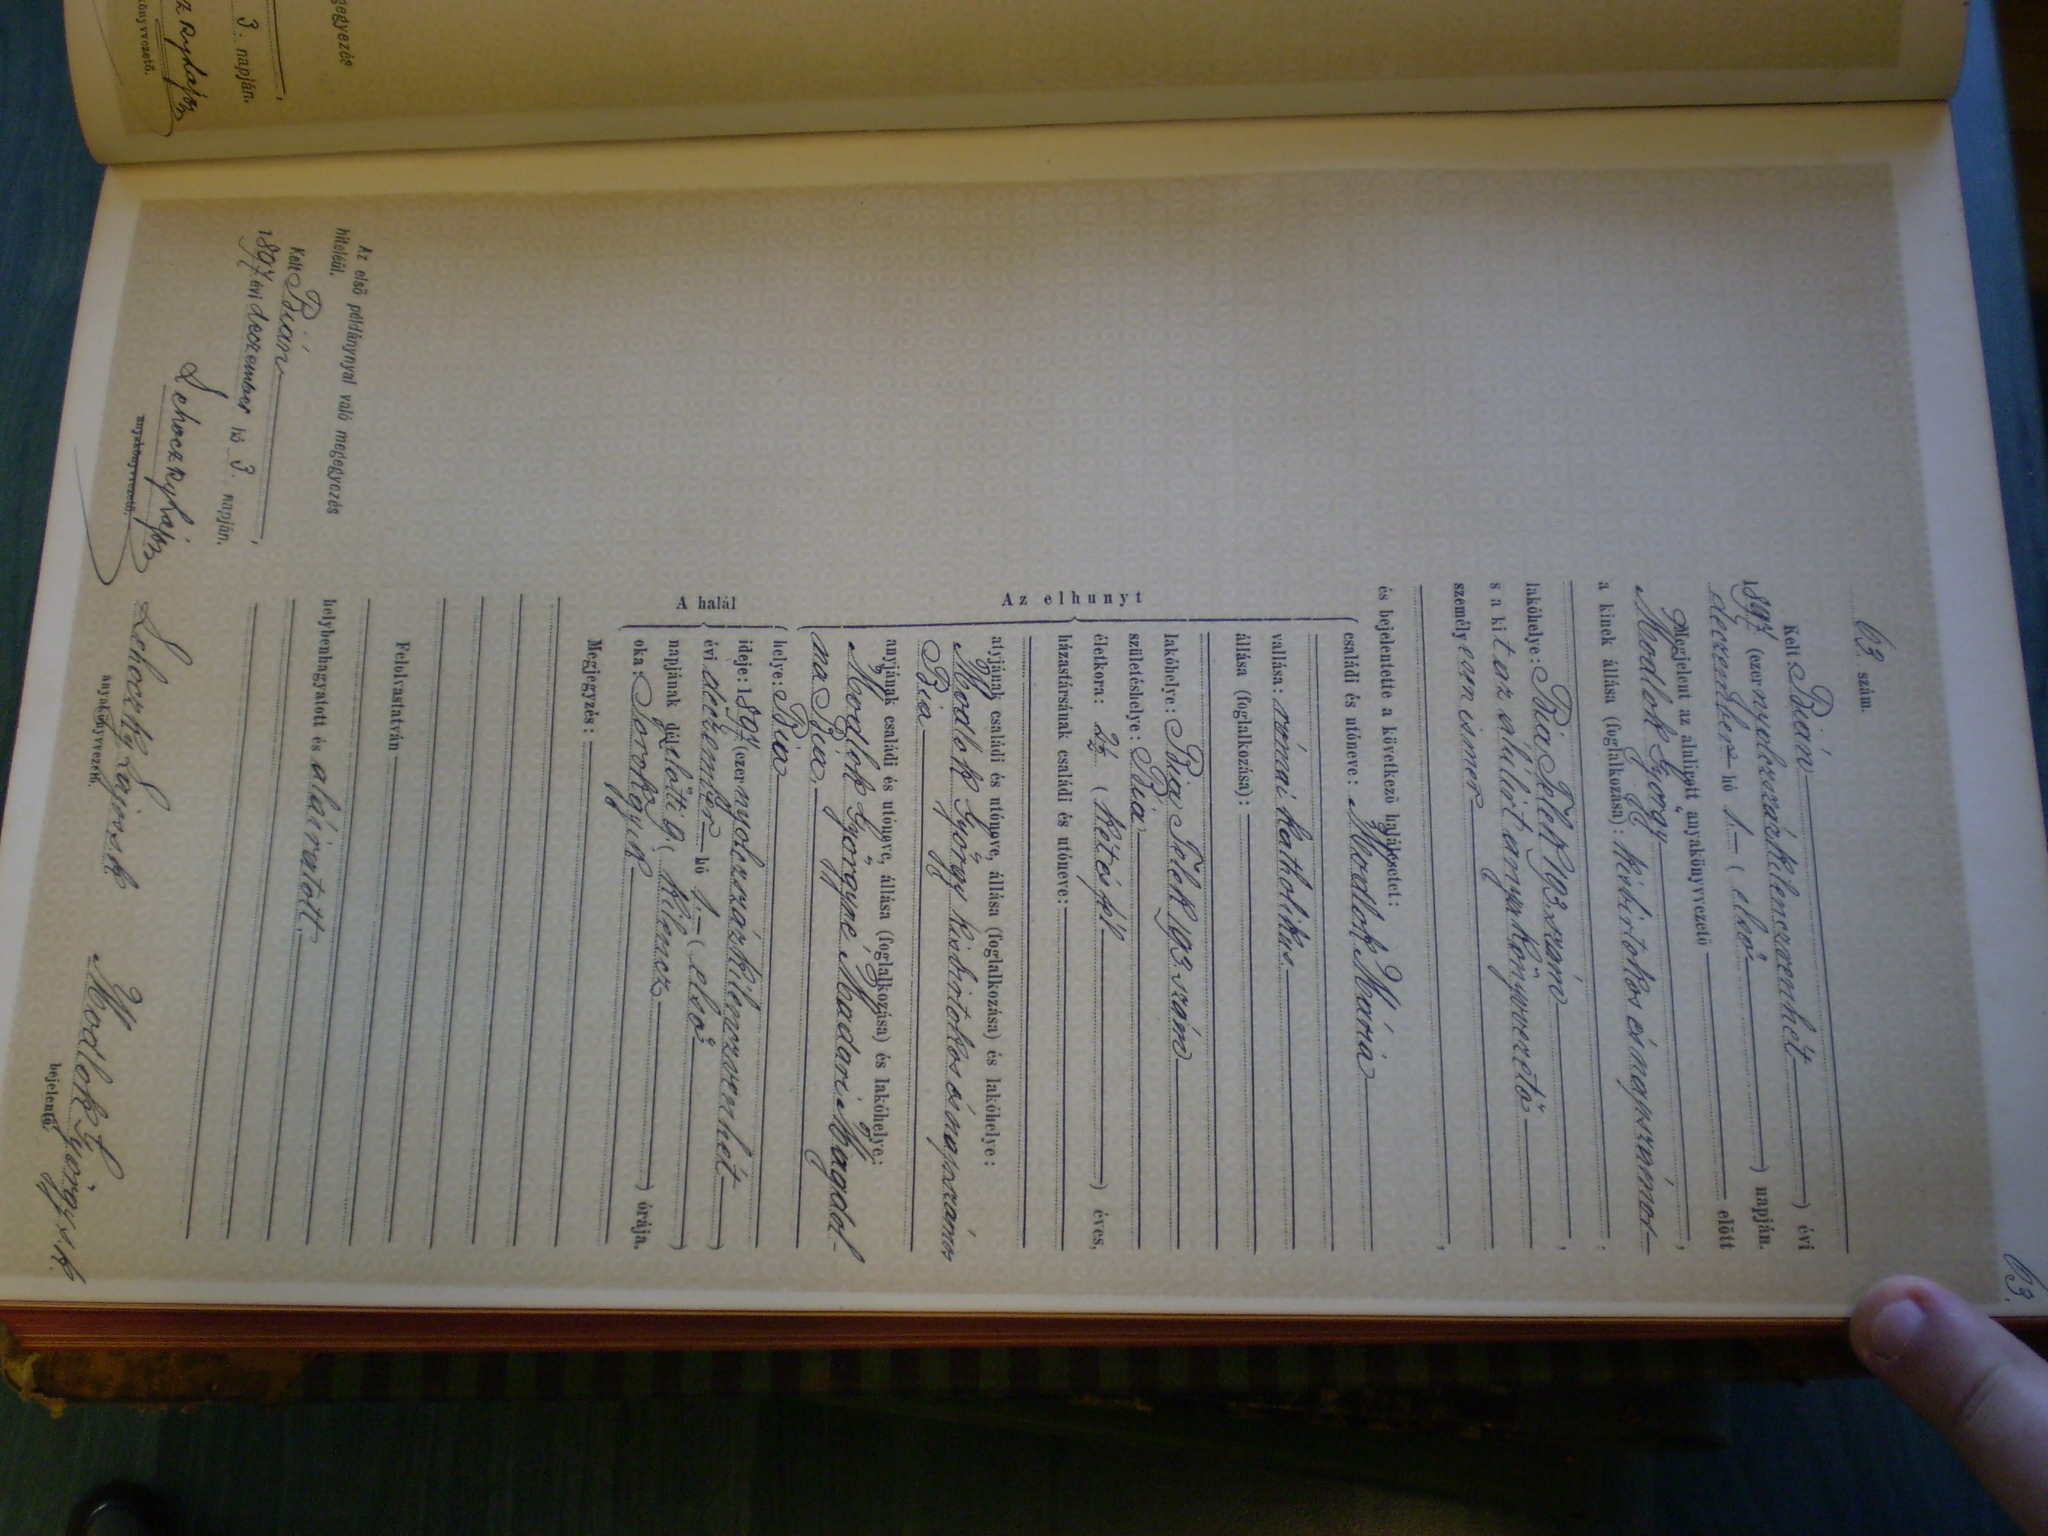 gegyezés
3. napján.
könyvvezető.
63.
63. szám.
Kelt Bián
1897 (ezer nyolczszázkilenczvenhét) évi
deczember hó 1. (első) napján.
Megjelent az alulirt anyakönyvvezető előtt
Modlok György,
a kinek állása (foglalkozása): kisbirtokos és napszámos
lakóhelye: Bia, Telek 193. szám,
s a kit az alulirt anyakönyvvezető
személyesen ismer,
és bejelentette a következő halálesetet:
Az elhunyt
családi és utóneve: Modlok Mária
vallása: római katholikus
állása (foglalkozása):
lakóhelye: Bia Telek 193 szám
születéshelye: Bia
életkora: 2½ (két és fél) éves,
házastársának családi és utóneve:
atyjának családi és utóneve, állása (foglalkozása) és lakóhelye:
Modlok György kisbirtokos és napszámos
Bia
anyjának családi és utóneve, állása (foglalkozása) és lakóhelye:
Modlok Györgyné Madari Magdol-
na Bia.
A halál
helye: Bia
ideje: 1897 (ezer nyolczszázkilenczvenhét)
évi deczember hó 1. (első)
napjának délelőtti 9 (kilencz) órája.
oka: Torokgyik
Megjegyzés:
Felolvastatván
helybenhagyatott és aláiratott.
Lehoczky Lajos s.k.
anyakönyvvezető.
Modlok György s.k.
bejelentő.
Az első példánynyal való megegyezés
hiteléül.
Kelt Bián,
1897 évi deczember hó 3. napján.
Lehoczky Lajos
anyakönyvvezető.